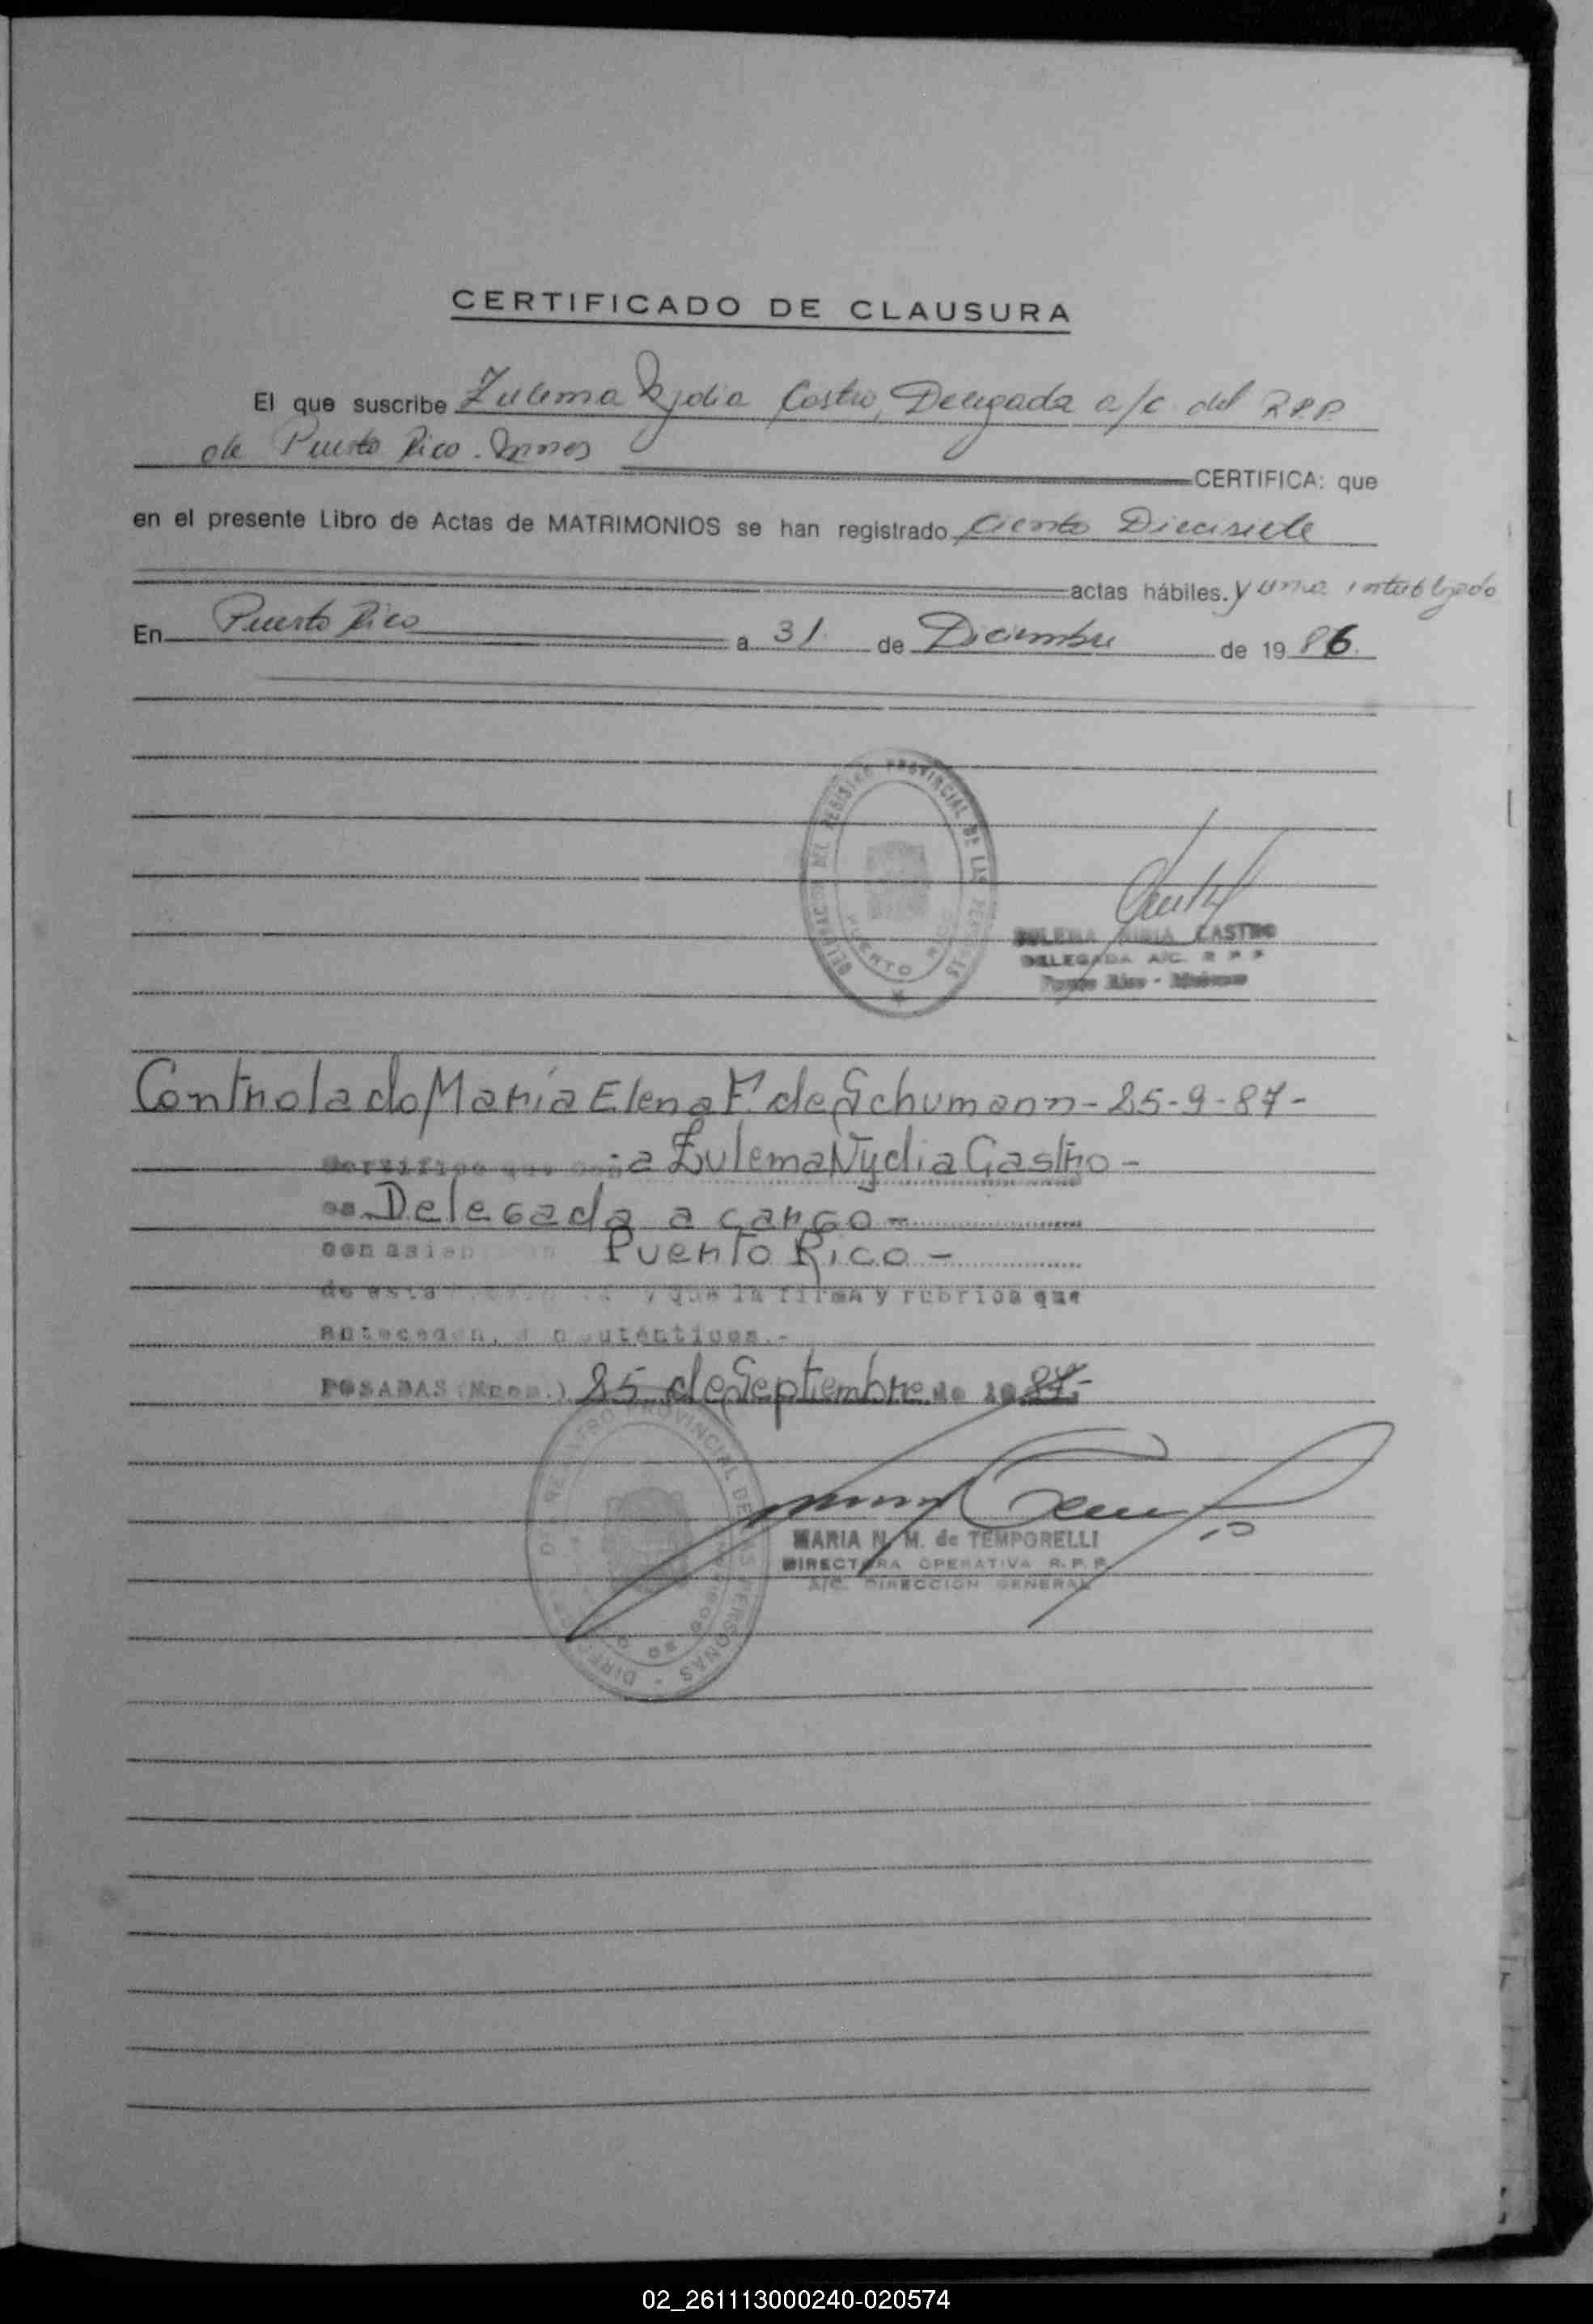 CERTIFICADO DE CLAUSURA
El que suscribe Zulema Nydia Castro, Delegada a/c del R.P.P.
de Puerto Rico. Mnes
CERTIFICA: que
en el presente Libro de Actas de MATRIMONIOS se han registrado Ciento Diecisiete
actas hábiles. y una
En Puerto Rico a 31 de Diciembre de 1986.
DELEGACION DEL REGISTRO PROVINCIAL DE LAS PERSONAS
PUERTO RICO
ZULEMA NIDIA CASTRO
DELEGADA A/C. R P P
Puerto Rico - Misiones
Controlado María Elena F. de Schumann - 25-9-87-
Certifico que a Zulema Nydia Castro -
es Delegada a cargo -
con asiento en Puerto Rico -
de esta y que la firma y rúbrica que
anteceden, son auténticas.-
POSADAS (Mnes.) 25 de Septiembre de 1987-
REGISTRO PROVINCIAL DE LAS PERSONAS
MARIA N. M. de TEMPORELLI
DIRECTORA OPERATIVA R. P. P.
A/C. DIRECCION GENERAL
02_261113000240-020574